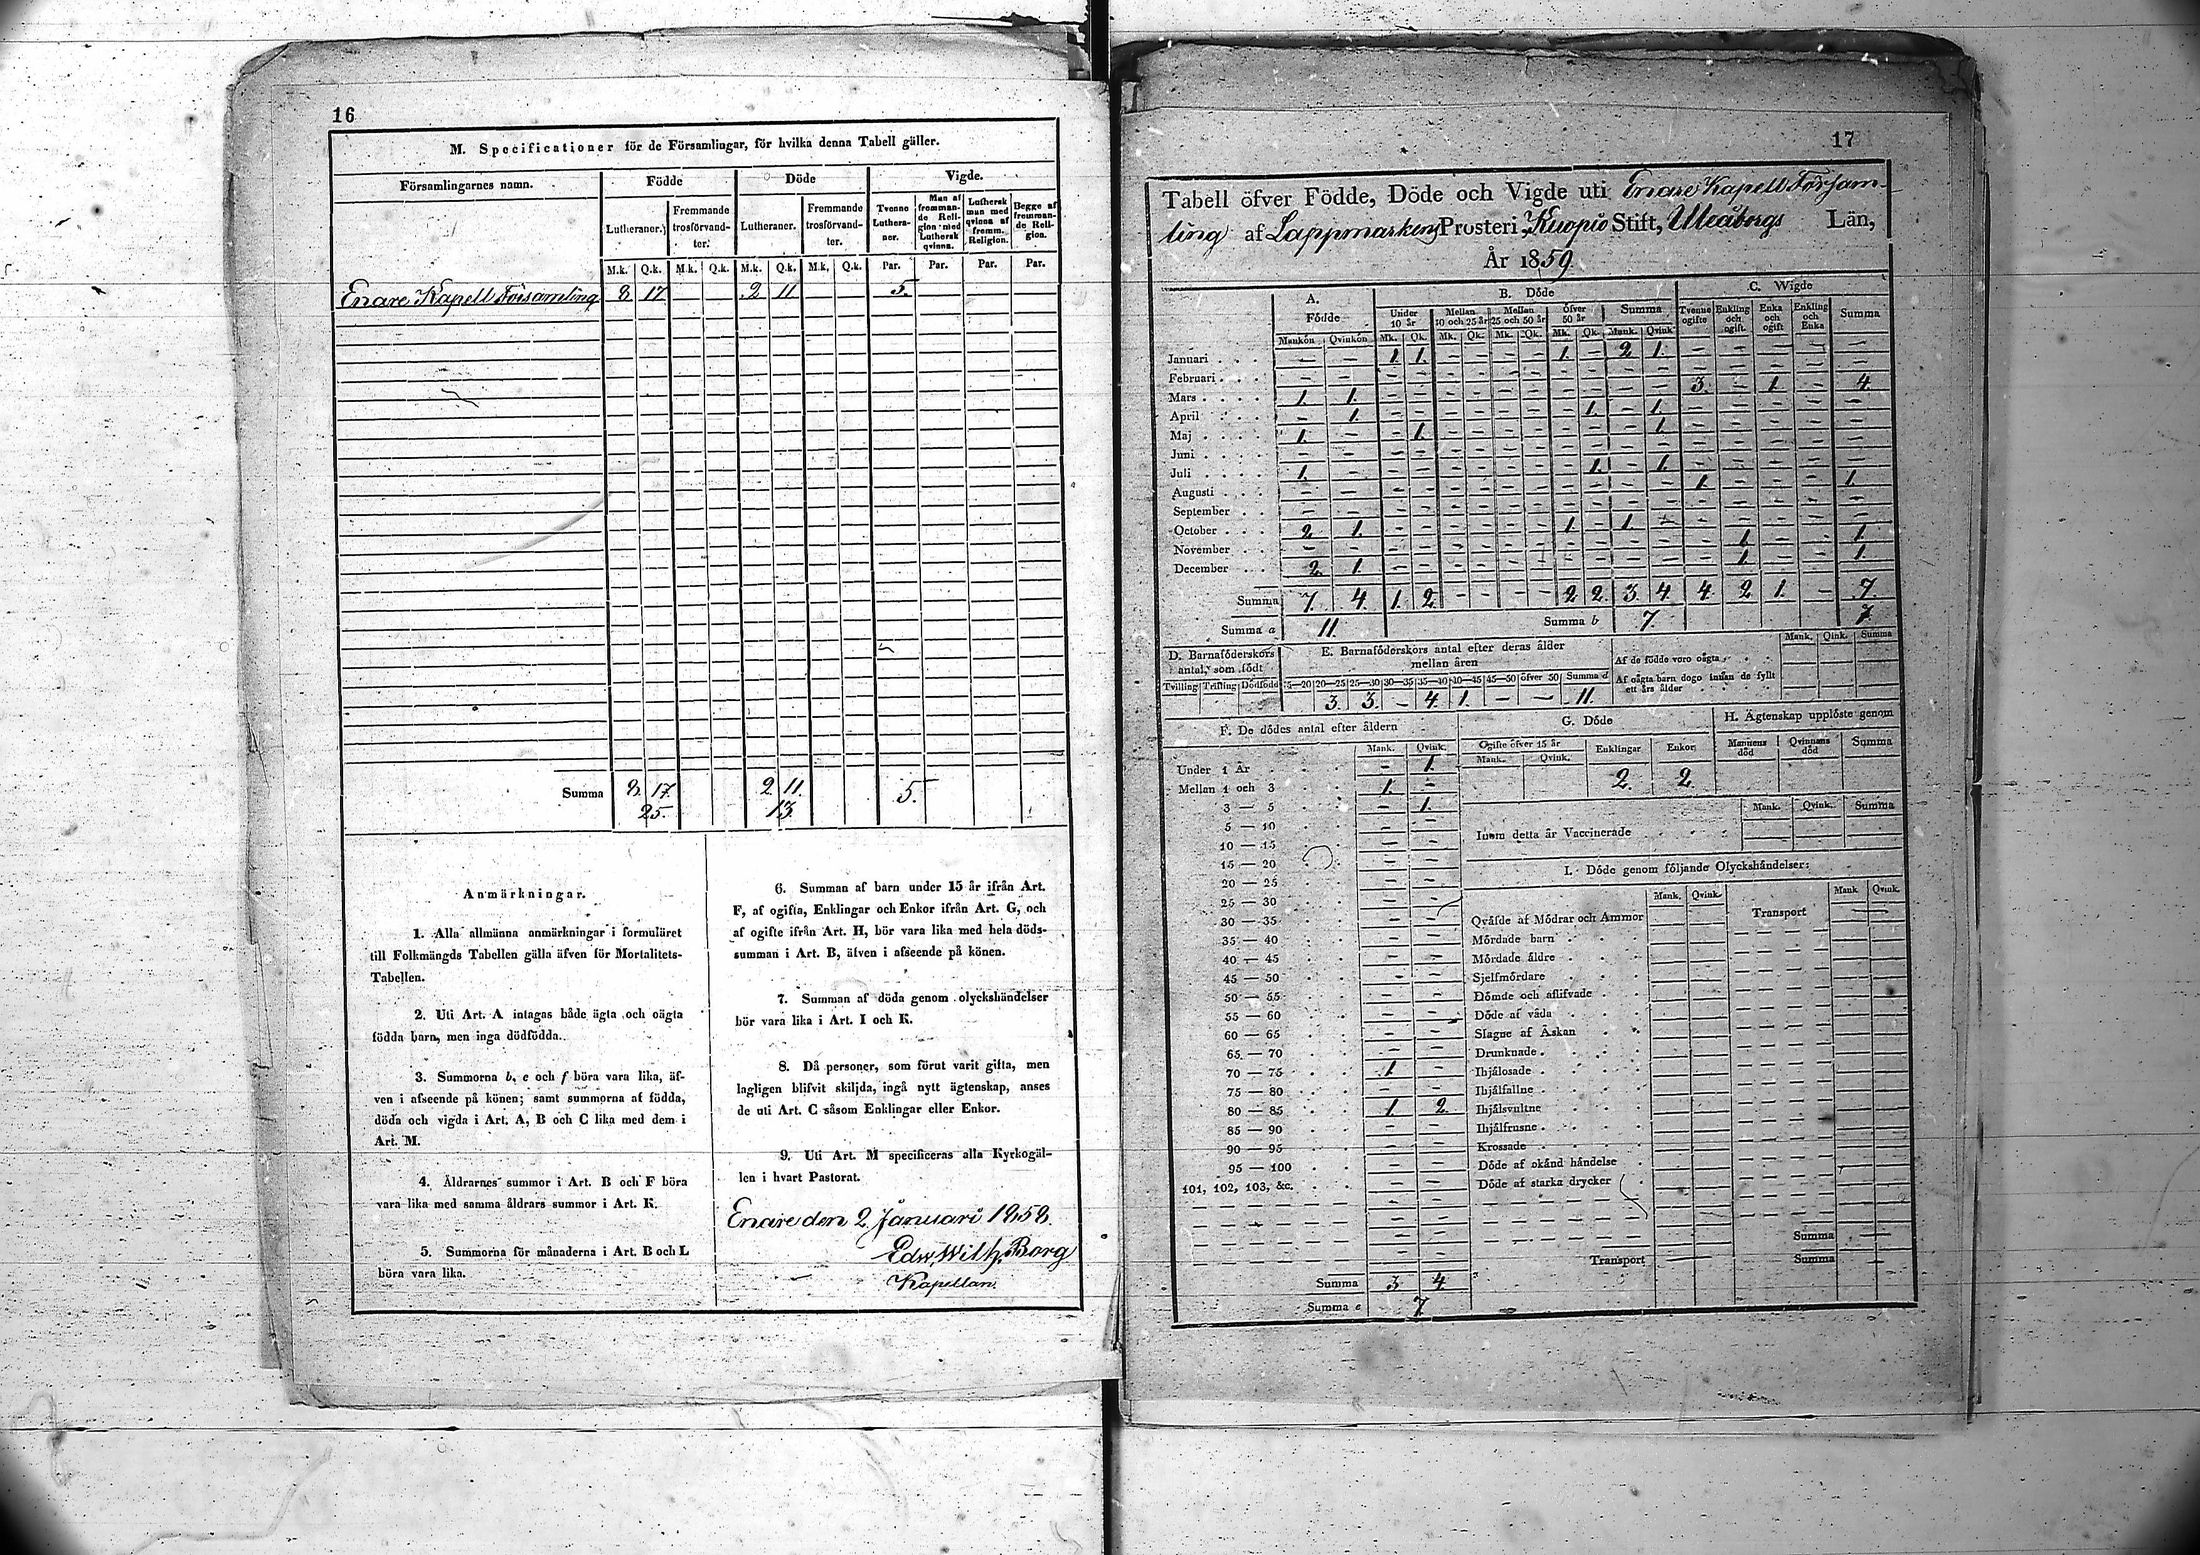 16
M. Specificationer för de Församlingar, för hvilka denna Tabell gäller.
Församlingarnes namn. Födde Döde Vigde.
Lutheraner. Fremmande trosförvandter. Lutheraner. Fremmande trosförvandter. Tvenne Lutheraner. Man af fremmande Religion med Luthersk qvinna. Luthersk man med qvinna af fremm. Religion. Begge af fremmande Religion.
M.k. Q.k. M.k. Q.k. M.k. Q.k. M.k. Q.k. Par. Par. Par. Par.
Enare Kapell Församling 8 17 2 11 5.
Summa 8. 17. 2. 11. 5.
25. 13.
Anmärkningar.
1. Alla allmänna anmärkningar i formuläret
till Folkmängds Tabellen gälla äfven för Mortalitets-
Tabellen.
2. Uti Art. A intagas både ägta och oägta
födda barn, men inga dödfödda.
3. Summorna b, e och f böra vara lika, äf-
ven i afseende på könen; samt summorna af födda,
döda och vigda i Art. A, B och C lika med dem i
Art. M.
4. Åldrarnes summor i Art. B och F böra
vara lika med samma åldrars summor i Art. K.
5. Summorna för månaderna i Art. B och L
böra vara lika.
6. Summan af barn under 15 år ifrån Art.
F, af ogifta, Enklingar och Enkor ifrån Art. G, och
af ogifte ifrån Art. H, bör vara lika med hela döds-
summan i Art. B, äfven i afseende på könen.
7. Summan af döda genom olyckshändelser
bör vara lika i Art. I och K.
8. Då personer, som förut varit gifta, men
lagligen blifvit skiljda, ingå nytt ägtenskap, anses
de uti Art. C såsom Enklingar eller Enkor.
9. Uti Art. M specificeras alla Kyrkogäl-
len i hvart Pastorat.
Enare den 2 Januari 1858.
Edw. Wilh. Borg
Kapellan.
17
Tabell öfver Födde, Döde och Vigde uti Enare Kapell Försam-
ling af Lappmarkens Prosteri, Kuopio Stift, Uleåborgs Län,
År 1859.
A. Födde B. Döde C. Wigde
Under 10 år Mellan 10 och 25 år Mellan 25 och 50 år Öfver 50 år Summa Tvenne ogifte Enkling och ogift Enka och ogift Enkling och Enka Summa
Mankön Qvinkön Mk. Qk. Mk. Qk. Mk. Qk. Mk. Qk. Mank. Qvink.
Januari . . . — — 1. 1. — — — — 1. — 2 1. — — — — —
Februari . . . — — — — — — — — — — — — — — — — —
Mars . . . . 1. 1. — — — — — — — — — — 3. — 1. — 4.
April . . . . — 1. — — — — — — — 1. — 1. — — — — —
Maj . . . . 1. — — 1. — — — — — — — 1. — — — — —
Juni . . . . — — — — — — — — — — — — — — — — —
Juli . . . . 1. — — — — — — — — 1. — 1. — — — — —
Augusti . . . — — — — — — — — — — — — 1. — — — 1.
September . . — — — — — — — — — — — — — — — — —
October . . . 2. 1. — — — — — — 1. — 1. — — — — — —
November . . — — — — — — — — — — — — — 1. — — 1.
December . . 2. 1. — — — — — — — — — — — 1. — — 1.
Summa 7. 4. 1. 2. — — — — 2 2. 3. 4. 4. 2. 1. — 7.
Summa a 11. Summa b 7. 7.
D. Barnaföderskors antal, som födt
Tvilling Trilling Dödfödd
E. Barnaföderskors antal efter deras ålder mellan åren
15—20 20—25 25—30 30—35 35—40 40—45 45—50 öfver 50 Summa d
3. 3. — 4. 1. — — 11.
Mank. Qink. Summa
Af de födde voro oägta
Af oägta barn dogo innan de fyllt
ett års ålder
F. De dödes antal efter åldern
Mank. Qvink.
Under 1 År — 1.
Mellan 1 och 3 1. —
3 — 5 — 1.
5 — 10 — —
10 — 15 — —
15 — 20 — —
20 — 25 — —
25 — 30 — —
30 — 35 — —
35 — 40 — —
40 — 45 — —
45 — 50 — —
50 — 55 — —
55 — 60 — —
60 — 65 — —
65 — 70 — —
70 — 75 1. —
75 — 80 — —
80 — 85 1. 2.
85 — 90 — —
90 — 95 — —
95 — 100 — —
101, 102, 103, &c. — —
Summa 3 4.
Summa e 7.
G. Döde
Ogifte öfver 15 år Enklingar Enkor
Mank. Qvink.
2. 2.
H. Ägtenskap upplöste genom
Mannens död Qvinnans död Summa
Mank. Qvink. Summa
Inom detta år Vaccinerade
I. Döde genom följande Olyckshändelser:
Mank. Qvink. Mank Qvink.
Transport
Qväfde af Mödrar och Ammor
Mördade barn
Mördade äldre
Sjelfmördare
Dömde och aflifvade
Döde af våda
Slagne af Åskan
Drunknade
Ihjälosade
Ihjälfallne
Ihjälsvultne
Ihjälfrusne
Krossade
Döde af okänd händelse
Döde af starka drycker
Summa
Transport Summa